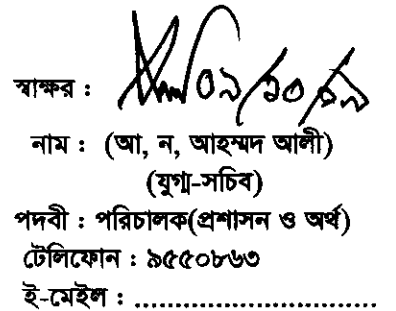 স্বাক্ষর : ০৯/১০/০৯
নাম : (আ, ন, আহম্মদ আলী)
(যুগ্ম-সচিব)
পদবী : পরিচালক(প্রশাসন ও অর্থ)
টেলিফোন : ৯৫৫০৮৬৩
ই-মেইল : ..............................